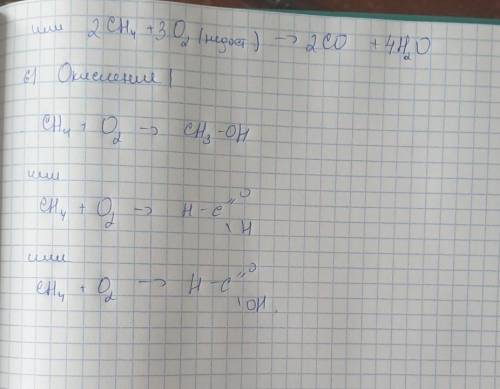 или 2CH₄ + 3O₂ (недост) → 2CO + 4H₂O
6) Окисление
CH₄ + O₂ → CH₃-OH
или
CH₄ + O₂ → H-C=O
H
или
CH₄ + O₂ → H-C=O
OH.